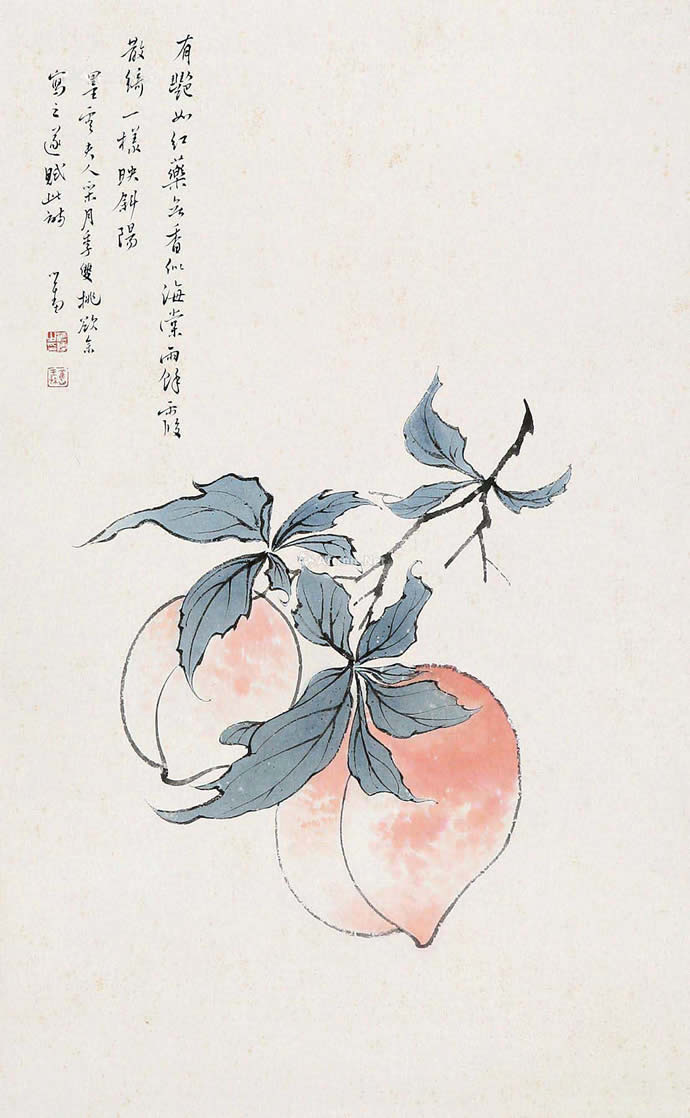 有艷如紅藥無香似海棠雨餘霞
散綺一樣映斜陽
墨雲夫人采月季雙桃欲余
寫之遂賦此詩
心畬